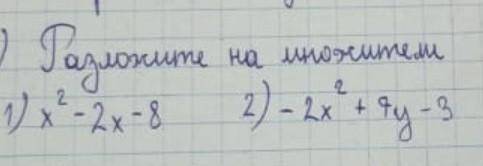 ) Разложите на множители
1) x² - 2x - 8 2) - 2x² + 7y - 3